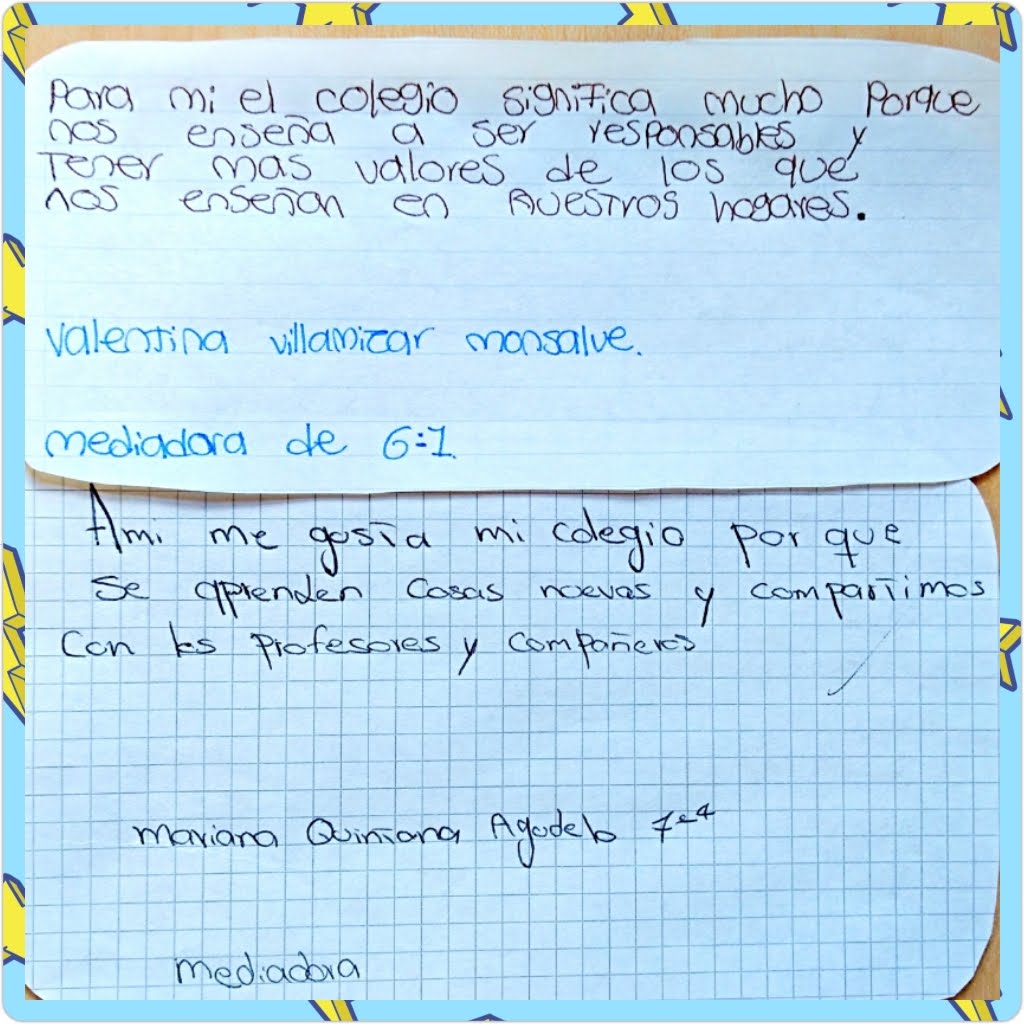 Para mi el colegio significa mucho Porque
nos enseña a ser responsables y
Tener mas valores de los que
nos enseñan en nuestros hogares.
Valentina villamizar monsalve.
mediadora de 6:1.
Ami me gusta mi colegio por que
se aprenden Cosas nuevas y compartimos
Con los profesores y compañeros
mariana Quintana Agudelo 7º4
mediadora